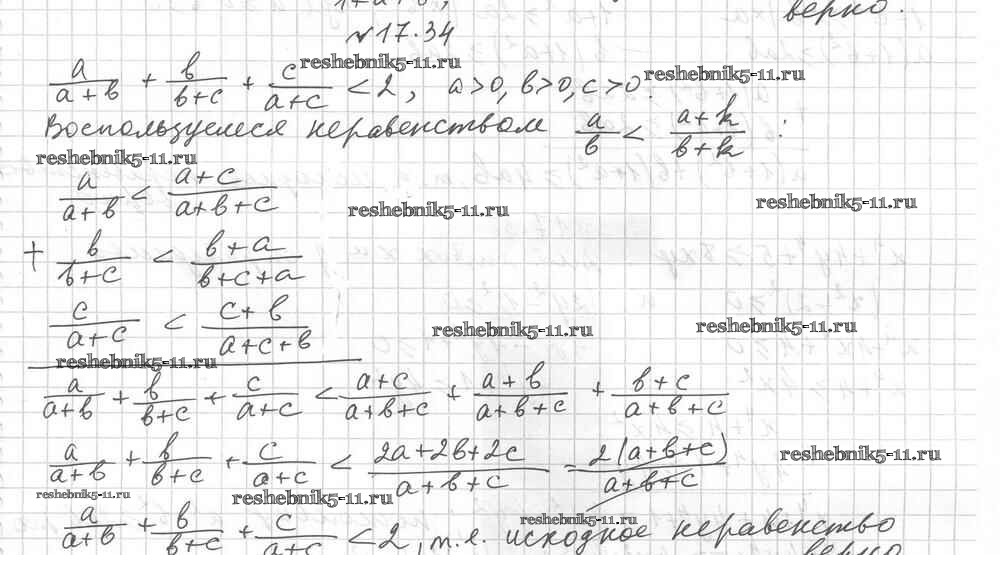 1+a+b ;
верно.
№17.34
reshebnik5-11.ru
reshebnik5-11.ru
a/(a+b) + b/(b+c) + c/(a+c) < 2, a>0, b>0, c>0.
Воспользуемся неравенством a/b < (a+k)/(b+k) :
reshebnik5-11.ru
a/(a+b) < (a+c)/(a+b+c)
reshebnik5-11.ru
reshebnik5-11.ru
+ b/(b+c) < (b+a)/(b+c+a)
c/(a+c) < (c+b)/(a+c+b)
reshebnik5-11.ru
reshebnik5-11.ru
reshebnik5-11.ru
a/(a+b) + b/(b+c) + c/(a+c) < (a+c)/(a+b+c) + (a+b)/(a+b+c) + (b+c)/(a+b+c)
a/(a+b) + b/(b+c) + c/(a+c) < (2a+2b+2c)/(a+b+c) = 2(a+b+c)/(a+b+c)
reshebnik5-11.ru
reshebnik5-11.ru
reshebnik5-11.ru
reshebnik5-11.ru
a/(a+b) + b/(b+c) + c/(a+c) < 2, т.е. исходное неравенство
верно